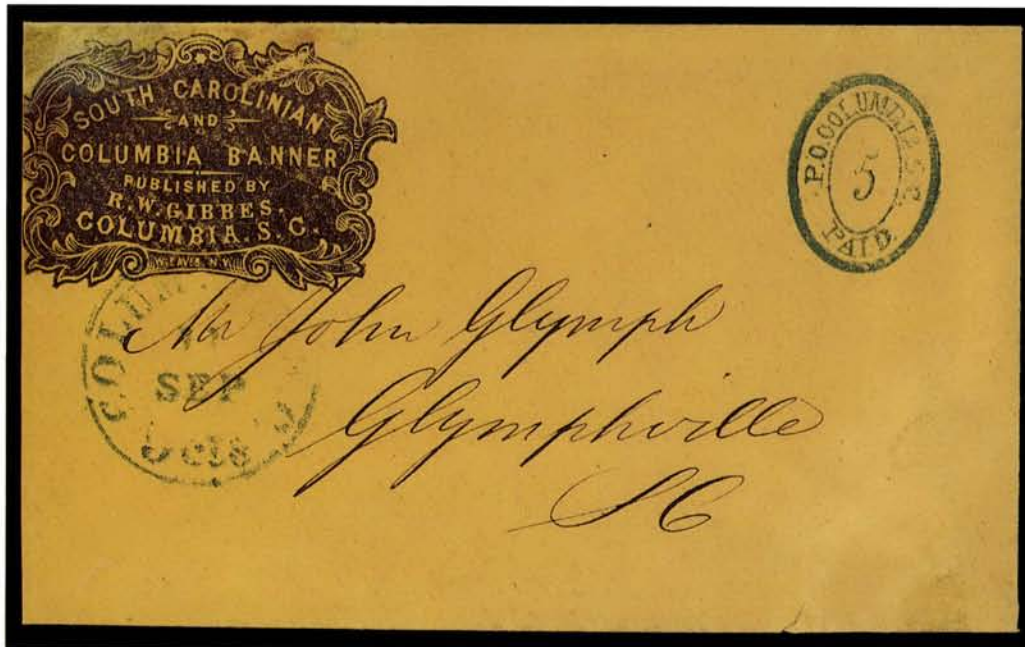 SOUTH CAROLINIAN
AND
COLUMBIA BANNER
PUBLISHED BY
R. W. GIBBES.
COLUMBIA. S. C.
P.O. COLUMBIA S.C.
5
PAID
SEP
5 cts
Mr John Glymph
Glymphville
SC